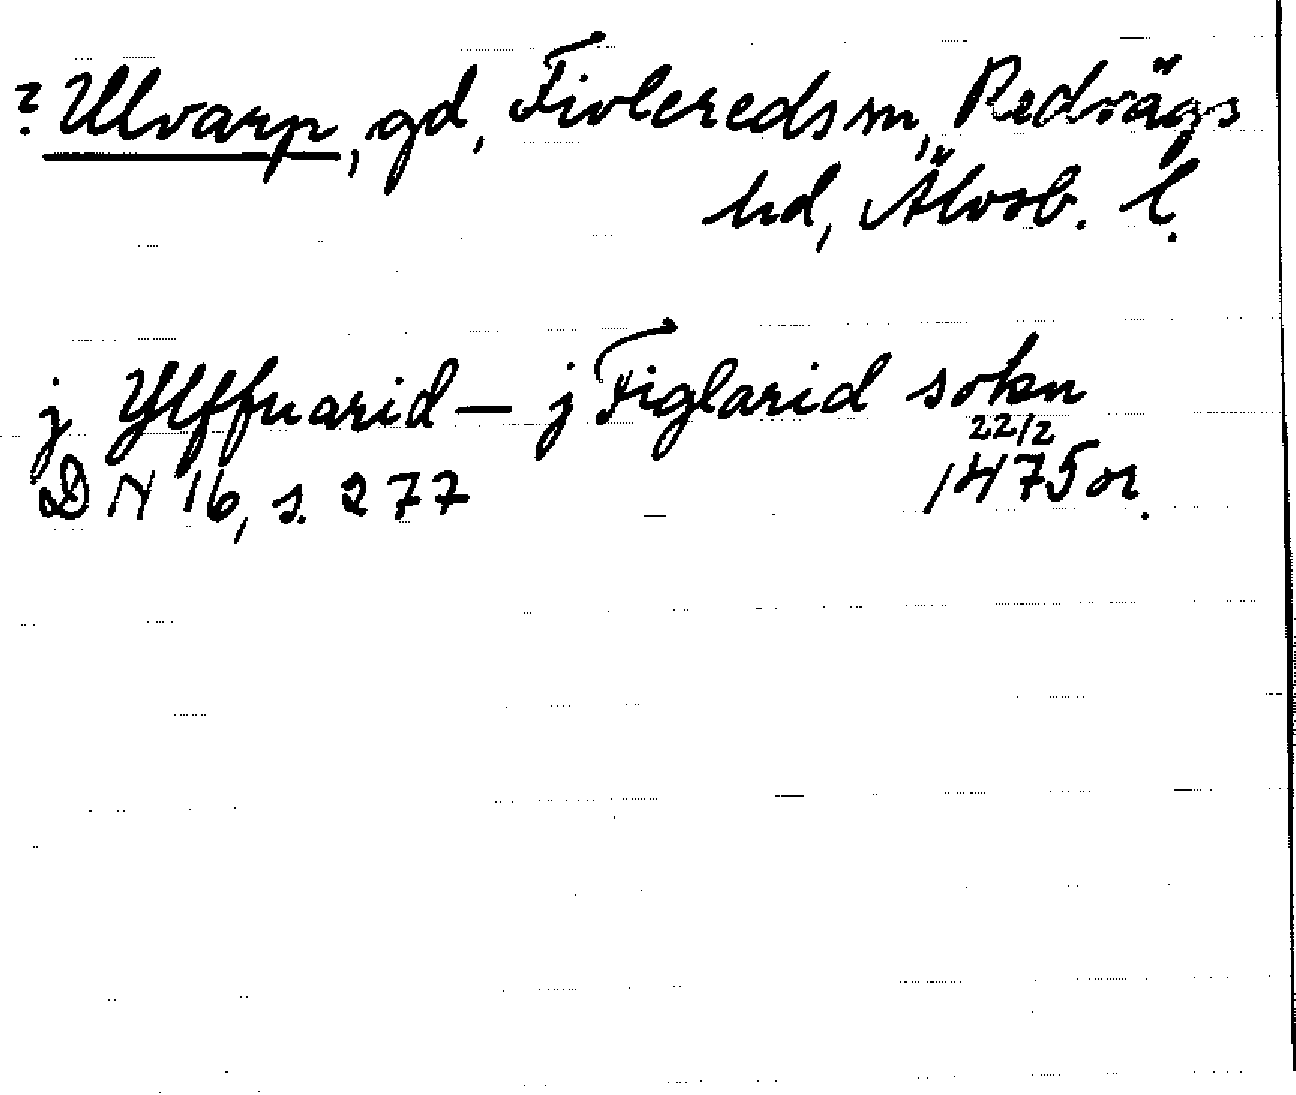 ? Ulvarp, gd, Fivlereds sn, Redvägs
hd, Älvsb. l.
j Ylffuarid — j Figlarid sokn
22/2
DN 16, s. 277 1475 or.